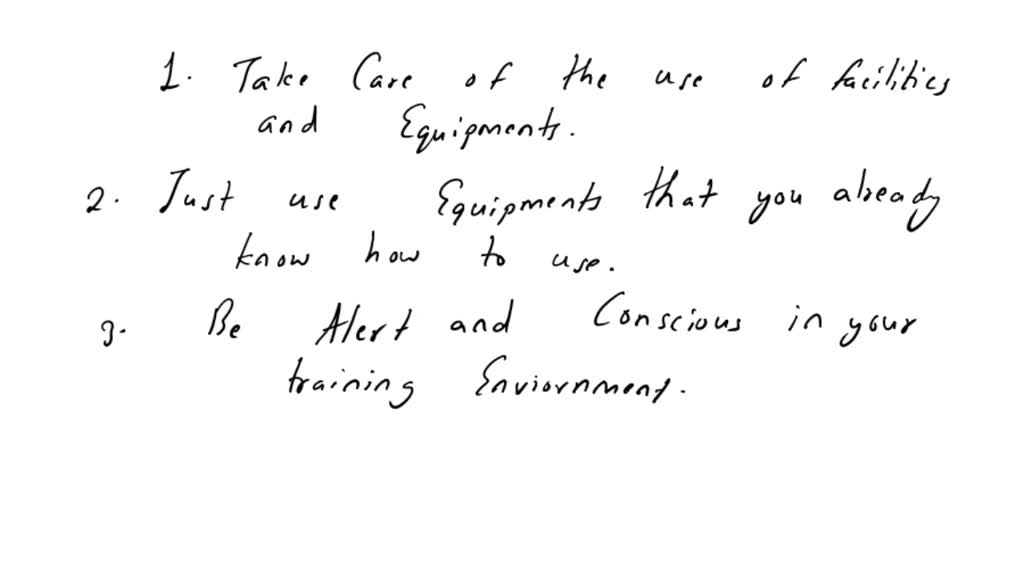 1. Take Care of the use of facilities
and Equipments.
2. Just use Equipments that you already
know how to use.
3. Be Alert and Conscious in your
training Enviornment.